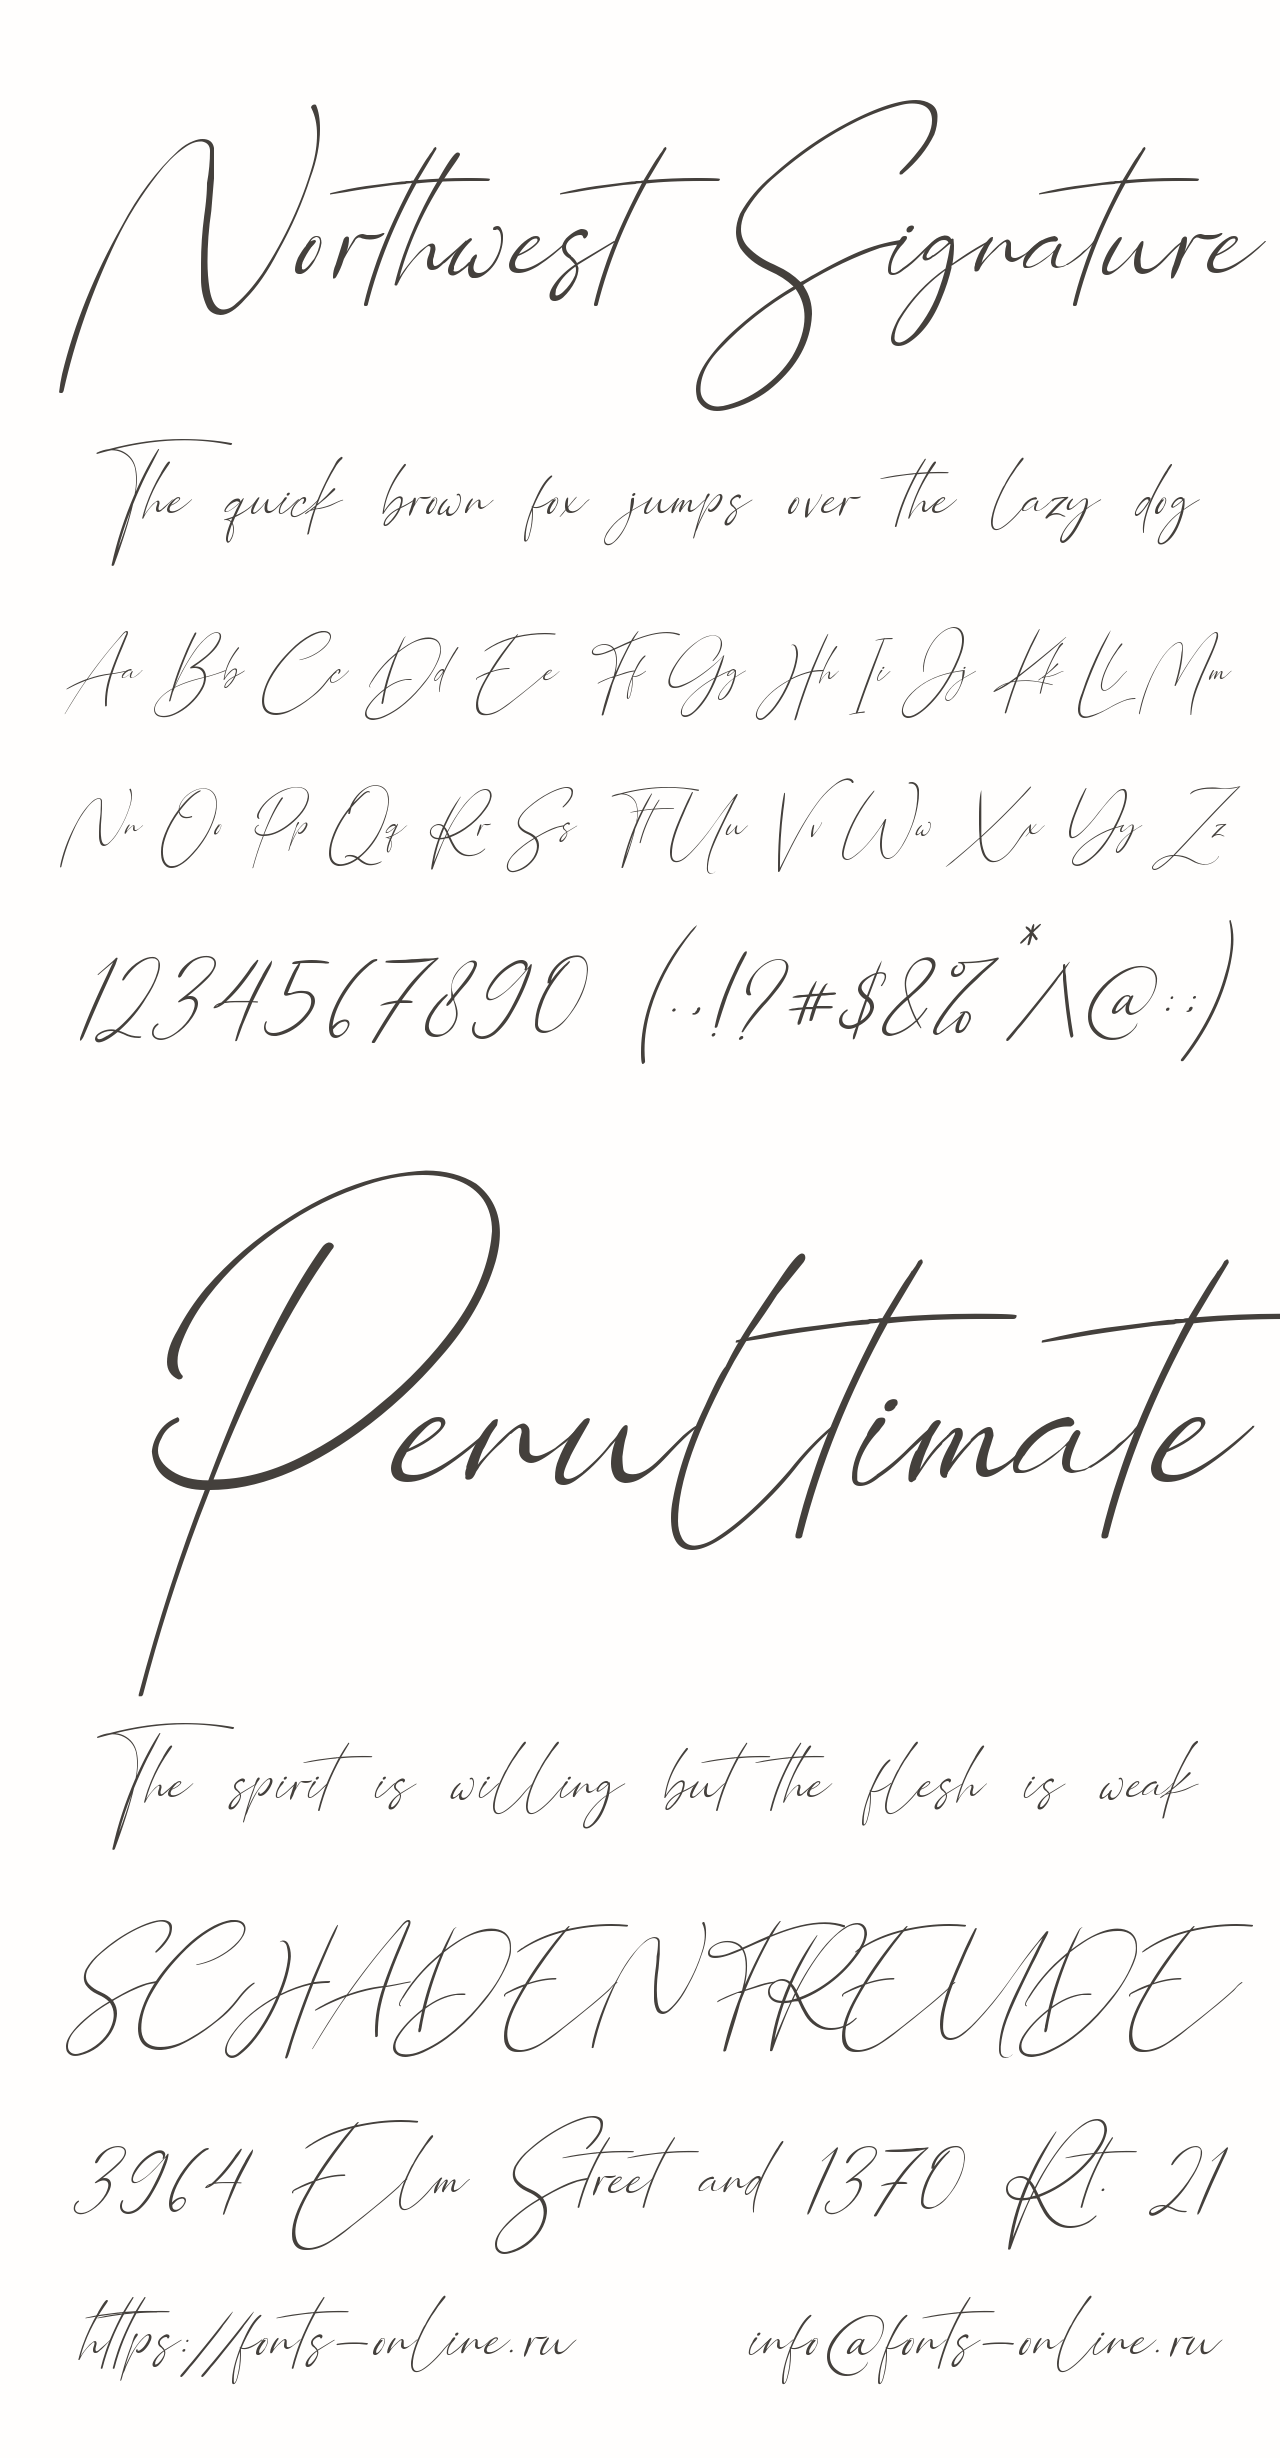 Northwest Signature
The quick brown fox jumps over the lazy dog
Aa Bb Cc Dd Ee Ff Gg Hh Ii Jj Kk Ll Mm
Nn Oo Pp Qq Rr Ss Tt Uu Vv Ww Xx Yy Zz
1234567890 (.,!?#$&%*/\@:;)
Penultimate
The spirit is willing but the flesh is weak
SCHADENFREUDE
3964 Elm Street and 1370 Rt. 21
https://fonts-online.ru info@fonts-online.ru